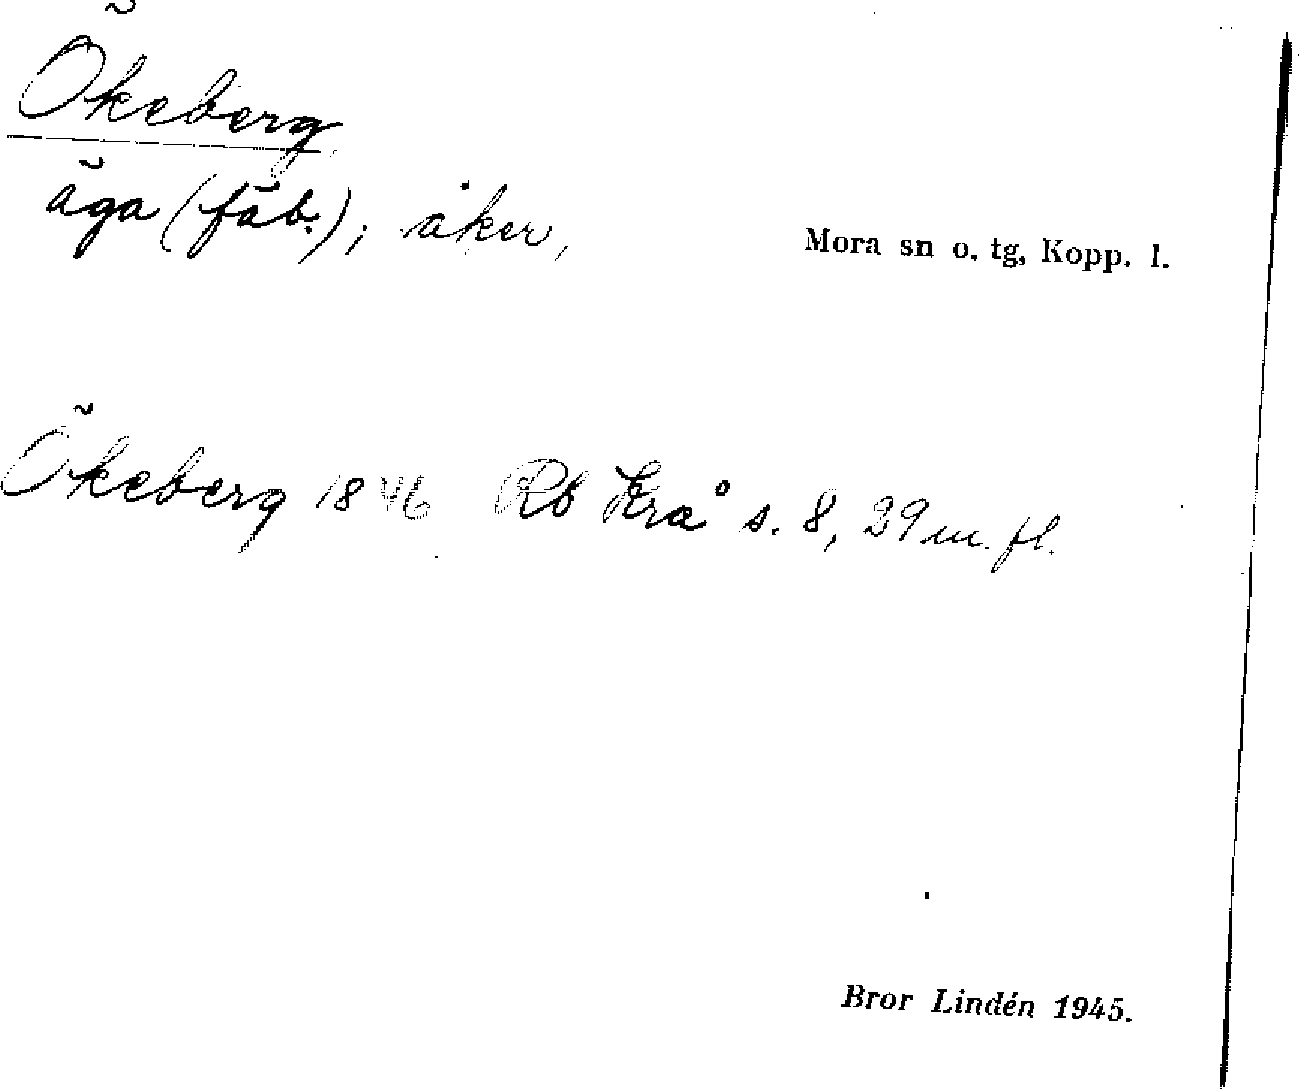 Ökeberg
äga (fäb.); åker,
Mora sn o. tg, Kopp. l.
Ökeberg 1846 Rb Krå s. 8, 29 m. fl.
Bror Lindén 1945.